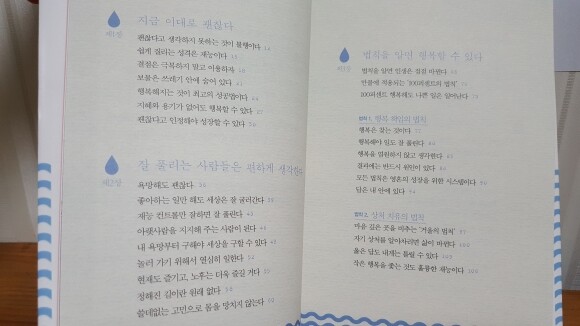 제1장
지금 이대로 괜찮다
괜찮다고 생각하지 못하는 것이 불행이다
쉽게 질리는 성격은 재능이다
결점은 극복하지 말고 이용하자
보물은 쓰레기 안에 숨어 있다
행복해지는 것이 최고의 성공법이다
지혜와 용기가 없어도 행복할 수 있다
괜찮다고 인정해야 성장할 수 있다
제2장
잘 풀리는 사람들은 편하게 생각한다
욕망해도 괜찮다
좋아하는 일만 해도 세상은 잘 굴러간다
재능 컨트롤만 잘하면 잘 풀린다
아랫사람을 지지해 주는 사람이 된다
내 욕망부터 구해야 세상을 구할 수 있다
놀러 가기 위해서 열심히 일한다
현재도 즐기고, 노후는 더욱 즐길 거다
정해진 길이란 원래 없다
쓸데없는 고민으로 몸을 망치지 않는다
제3장
법칙을 알면 행복할 수 있다
법칙을 알면 인생은 절로 바뀐다
만물에 적용되는 '100퍼센트의 법칙'
100퍼센트 행복해도 나쁜 일은 일어난다
법칙 1. 행복 책임의 법칙
행복은 같는 것이다
행복해야 일도 잘 풀린다
행복을 염원하지 않고 생각한다
결과에는 반드시 원인이 있다
모든 법칙은 영혼의 성장을 위한 시스템이다
답은 내 안에 있다
법칙 2. 상처 치유의 법칙
마음 깊은 곳을 비추는 '거울의 법칙'
자기 상처를 알아차리면 삶이 바뀐다
옳은 답도 내세는 틀릴 수 있다
작은 행복을 좇는 것도 훌륭한 재능이다